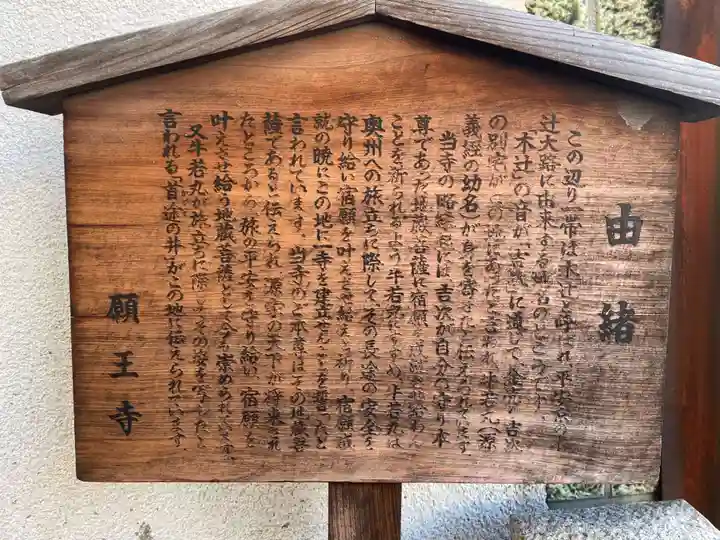 由緒
この辺り一帯は「木辻」と呼ばれ、平安京の
辻大路に由来する地名のところです。
「木辻」の音が「吉次」に通じて、金売り吉次
の別宅がこの地にあったと言われ、牛若丸(源
義経の幼名)が身を寄せたと伝えられています。
当寺の略縁起には、吉次が自分の守り本
尊であった地蔵菩薩に宿願
ことを祈られるよう牛若丸にすすめ、牛若丸は
奥州への旅立ちに際して、その長途の安全を
守り給い宿願を叶えさせ給えと祈り、宿願成
就の暁にこの地に一寺を建立せんことを誓ったと
言われています。当寺のご本尊はその地蔵菩
薩であると伝えられ、源家の天下が将来され
たところから、旅の平安を守り給い、宿願を
叶えさせ給う地蔵菩薩として今も崇められています。
又牛若丸が旅立ちに際しその姿を写したと
言われる「首途の井」がこの地に伝えられています。
願王寺